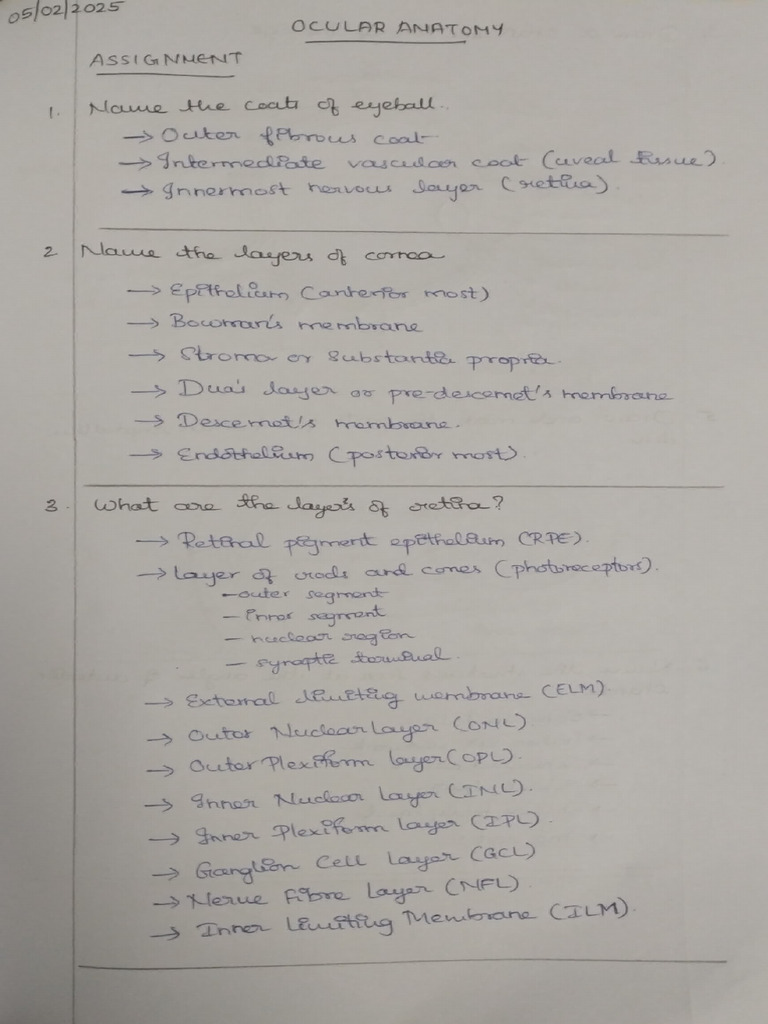 05/02/2025
OCULAR ANATOMY
ASSIGNMENT
1. Name the coats of eyeball.
→ Outer fibrous coat
→ Intermediate vascular coat (uveal tissue)
→ Innermost nervous layer (retina).
2 Name the layers of cornea
→ Epithelium (anterior most)
→ Bowman's membrane
→ Stroma or Substantia propria.
→ Dua's layer or pre-descemet's membrane
→ Descemet's membrane.
→ Endothelium (posterior most).
3. What are the layer's of retina?
→ Retinal pigment epithelium (RPE).
→ Layer of rods and cones (photoreceptors).
- outer segment
- inner segment
- nuclear region
- synaptic terminal.
→ External limiting membrane (ELM).
→ Outer Nuclear Layer (ONL)
→ Outer Plexiform layer (OPL).
→ Inner Nuclear Layer (INL).
→ Inner Plexiform Layer (IPL).
→ Ganglion Cell Layer (GCL)
→ Nerve Fibre Layer (NFL).
→ Inner Limiting Membrane (ILM).